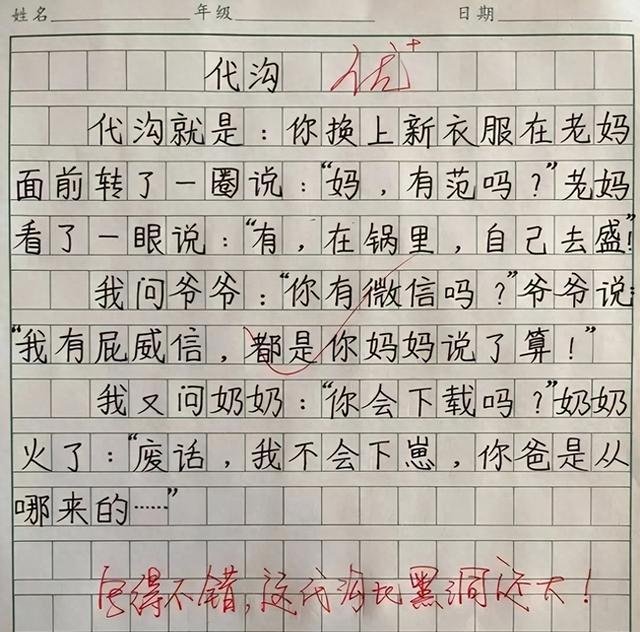 姓名 年级 日期
代沟 优+
代沟就是：你换上新衣服在老妈
面前转了一圈说：“妈，有范吗？”老妈
看了一眼说：“有，在锅里，自己去盛！”
我问爷爷：“你有微信吗？”爷爷说：
“我有屁威信，都是你妈妈说了算！”
我又问奶奶：“你会下载吗？”奶奶
火了：“废话，我不会下崽，你爸是从
哪来的……”
写得不错，这代沟比黑洞还大！